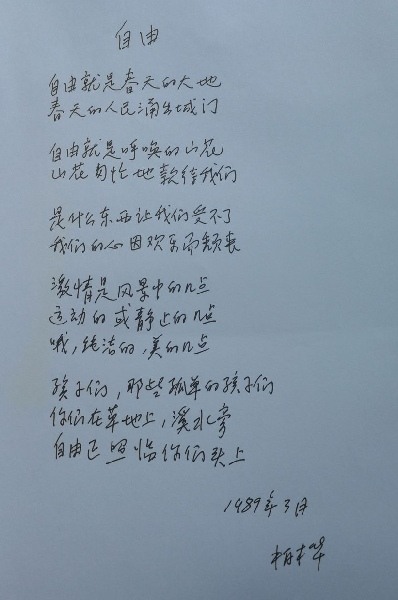 自由
自由就是春天的大地
春天的人民涌出城门
自由就是呼唤的山花
山花匆忙地献给我们
是什么东西让我们受不了
我们的心因欢乐而颓丧
激情是风景中的几点
运动的或静止的几点
哦,纯洁的,美的几点
孩子们,那些孤单的孩子们
你们在草地上,溪水旁
自由正照临你们头上
1989年3月
柏桦